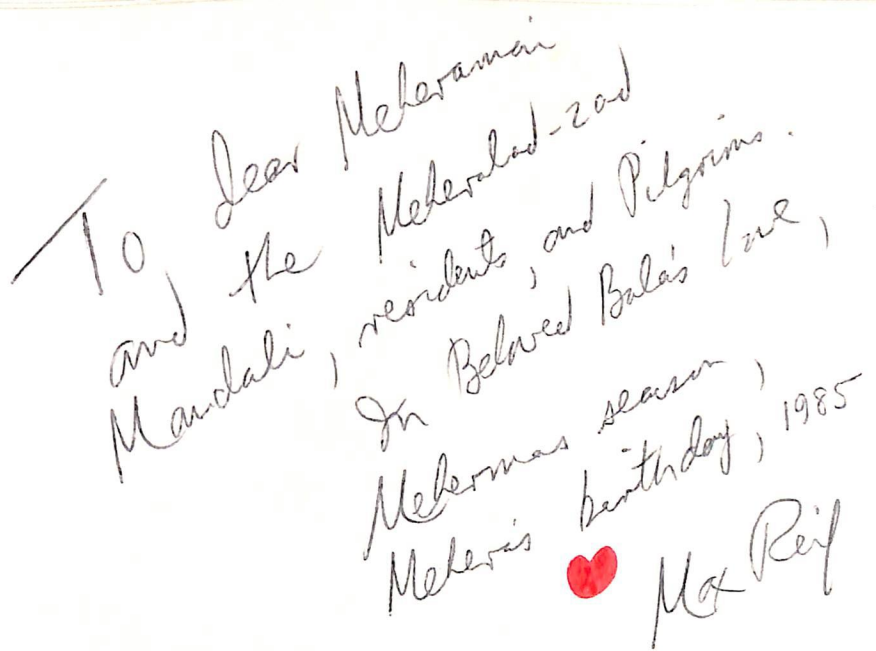 To dear Meheramai
and the Meherabad-zad
Mandali, residents, and Pilgrims.
In Beloved Baba's love,
Mehermas season,
Mehera's birthday, 1985
Max Reif